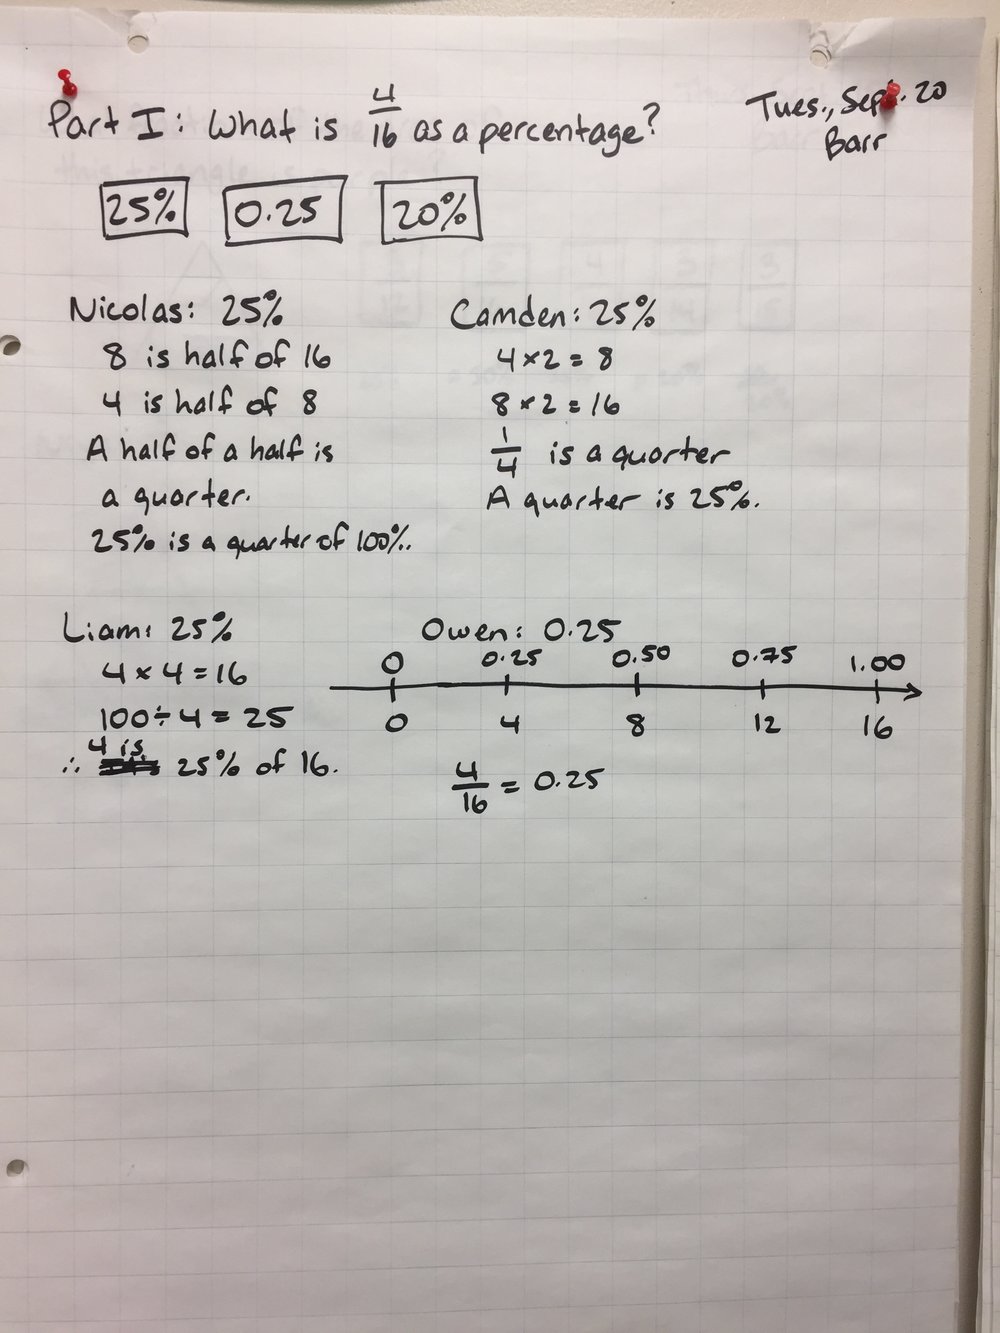 Part I: What is 4/16 as a percentage?
Tues., Sept. 20
Barr
25% 0.25 20%
Nicolas: 25%
8 is half of 16
4 is half of 8
A half of a half is
a quarter.
25% is a quarter of 100%.
Camden: 25%
4 × 2 = 8
8 × 2 = 16
1/4 is a quarter
A quarter is 25%.
Liam: 25%
4 × 4 = 16
100 ÷ 4 = 25
∴ 4 is 25% of 16.
Owen: 0.25
0 0.25 0.50 0.75 1.00
0 4 8 12 16
4/16 = 0.25